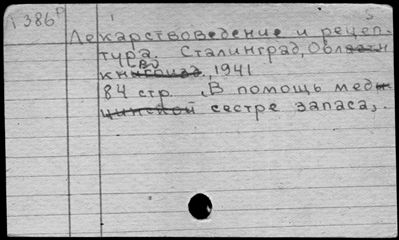 1386р 1 5
Лекарствоведение и рецеп-
тура. Сталинград, Областн
книгоизд., 1941
84 стр. „В помощь меди
цинской сестре запаса„.